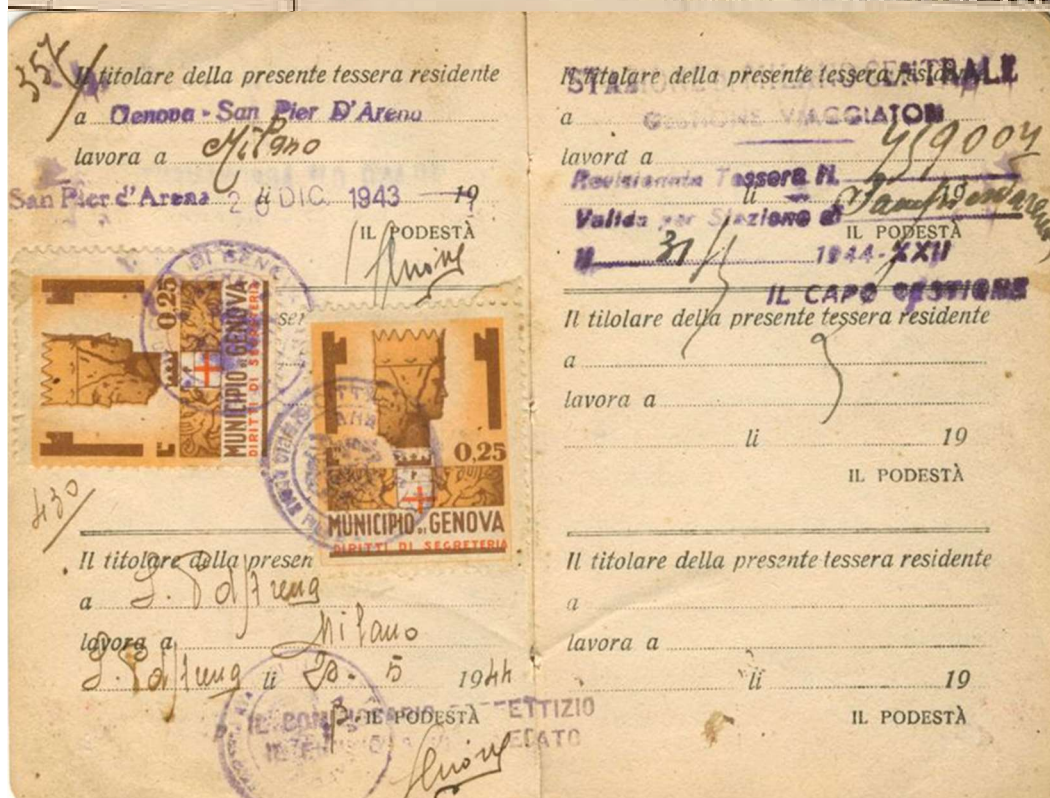 357
Il titolare della presente tessera residente
a Genova - San Pier D'Arena
lavora a Milano
San Pier d'Arena li 20 DIC. 1943 19
IL PODESTÀ
0,25
MUNICIPIO DI GENOVA
DIRITTI DI SEGRETERIA
0,25
MUNICIPIO DI GENOVA
DIRITTI DI SEGRETERIA
430
Il titolare della presen
a S. P. d'Arena
lavora a Milano
S. P. d'Arena li 20. 5 1944
IL PODESTÀ
Il titolare della presente tessera
STAZIONE DI MILANO CENTRALE
a
GESTIONE VIAGGIATORI
lavora a 459004
Revisionata Tessera N.
li 19
Valida per Stazione di
IL PODESTÀ
Il 31 1944-XXII
IL CAPO GESTIONE
Il tilolare della presente tessera residente
a
lavora a
li 19
IL PODESTÀ
Il titolare della presente tessera residente
a
lavora a
li 19
IL PODESTÀ